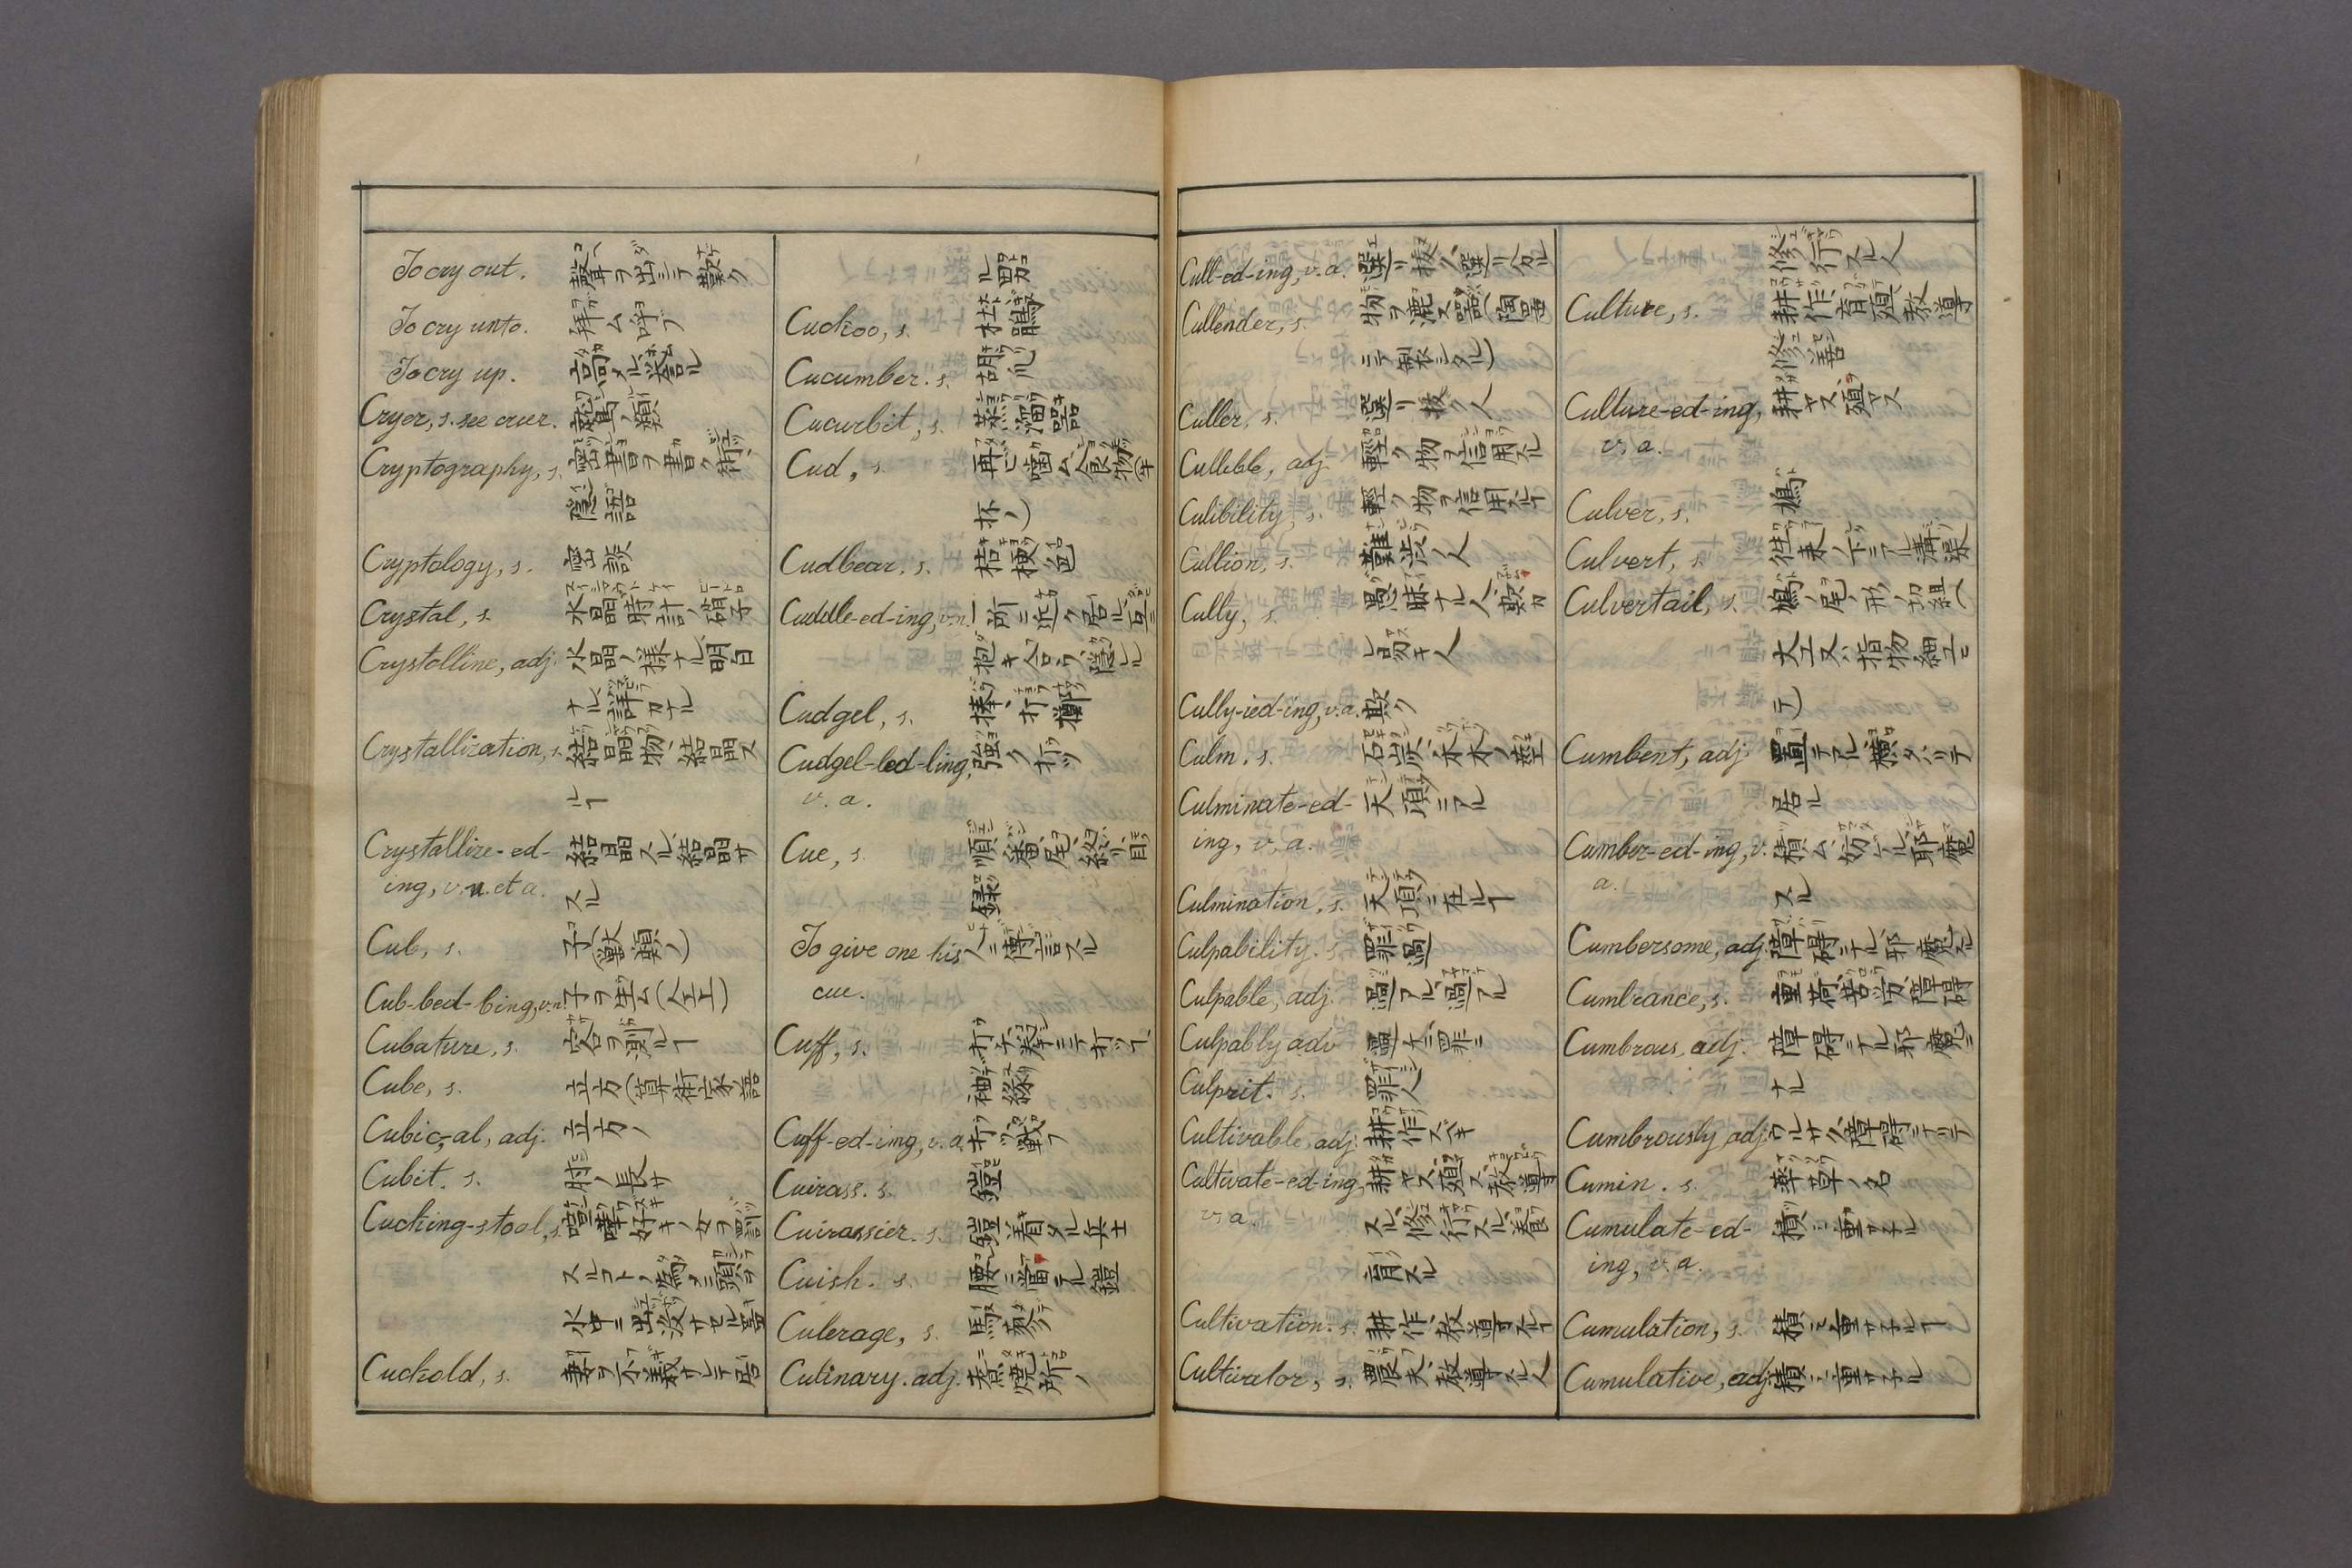 To cry out. 聲ヲ出シテ歎ク
To cry unto. 拜ム呼ブ
To cry up. 高メル、譽ル
Cryer, s. see crier.
Cryptography, s. 密書ヲ書ク術、
隱語
Cryptology, s. 密談
Crystal, s. 水晶、時計ノ硝子
Crystalline, adj. 水晶ノ樣ナル、明白
ナル、詳カナル
Crystallization, s. 結晶物、結晶ス
ルヿ
Crystallize-ed- 結晶スル、結晶サ
ing, v. n. et a. スル
Cub, s. 子(獸類ノ)
Cub-bed-bing, v. n. 子ヲ生ム(仝上)
Cubature, s. 容ヲ測ルヿ
Cube, s. 立方(算術家語
Cubic,-al, adj. 立方ノ
Cubit. s. 肘ノ長サ
Cucking-stool, s. 喧嘩好キノ女ヲ罰
スルコトノ爲メニ頭ヲ
水中ニ出沒サセル
Cuckold, s. 妻ヲ不義サレテ居
ル男
Cuckoo, s. 杜鵑
Cucumber. s. 胡瓜
Cucurbit, s. 蒸溜器
Cud, s. 再ビ嚙ム食物(牛
抔ノ)
Cudbear, s. 桔梗色
Cuddle-ed-ing, v. n. 一所ニ近ク居ル、互ニ
抱キ合フ、隱レル
Cudgel, s. 捧、打擲
Cudgel-led-ling, 強ク打ツ
v. a.
Cue, s. 順番、尾、終リ、目
To give one his 人ニ傳言スル
cue.
Cuff, s. 打チ、拳ニテ打ツヿ、
袖緣
Cuff-ed-ing, v. a. 打ツ、戰フ
Cuirass. s. 鎧
Cuirassier. s. 鎧着タル兵士
Cuish. s. 腰ニ當テル鎧
Culerage, s. 馬蓼
Culinary. adj. 煮燒所ノ
Cull-ed-ing, v. a. 選リ拔ク、選リ分ル
Cullender, s. 物ヲ漉ス器(陶器
ニテ製シタル)
Culler, s. 選リ拔ク人
Cullible, adj. 輕ク物ヲ信用スル
Culibility, s. 輕ク物ヲ信用スルヿ
Cullion, s. 難澁ノ人
Cully, s. 愚昧ナル人、欺カ
レ易キ人
Cully-ied-ing, v. a. 欺ク
Culm. s. 石炭、草木ノ莖
Culminate-ed- 天頂ニアル
ing, v. a.
Culmination, s. 天頂ニ在ルヿ
Culpability. s. 罪過
Culpable, adj. 過アル、過アル
Culpably adv
Culprit. s. 罪人
Cultivable, adj. 耕作スベキ
Cultivate-ed-ing, 耕ヤス、殖ス、敎導
v. a. スル、修行スル、養
育スル
Cultivation. s. 耕作、敎導スルヿ
Cultivator, s. 農夫、敎導スル人
修行スル人
Culture, s. 耕作、育殖、敎導
修善
Culture-ed-ing, 耕ヤス、殖ヤス
v. a.
Culver, s. 鳩
Culvert, s. 往來ノ下ニアル溝渠
Culvertail, s. 鳩ノ尾ノ形ノ切組(
大工又ハ指物細工ニ
テ)
Cumbent, adj. 置テアル、橫タハリテ
居ル
Cumber-ed-ing, v. 積ム、妨ケル、邪魔
a. スル
Cumbersome, adj. 障碍ニナル、邪魔ナル
Cumbrance, s. 重荷、苦労、障碍
Cumbrous, adj. 障碍ニナル、邪魔ニ
ナル
Cumbrously adj. ウルサク、障碍ニナリテ
Cumin. s. 藥草ノ名
Cumulate-ed- 積ミ重ヌル
ing, v. a.
Cumulation, s. 積ミ重サナルヿ
Cumulative, adj. 積ミ重サナル